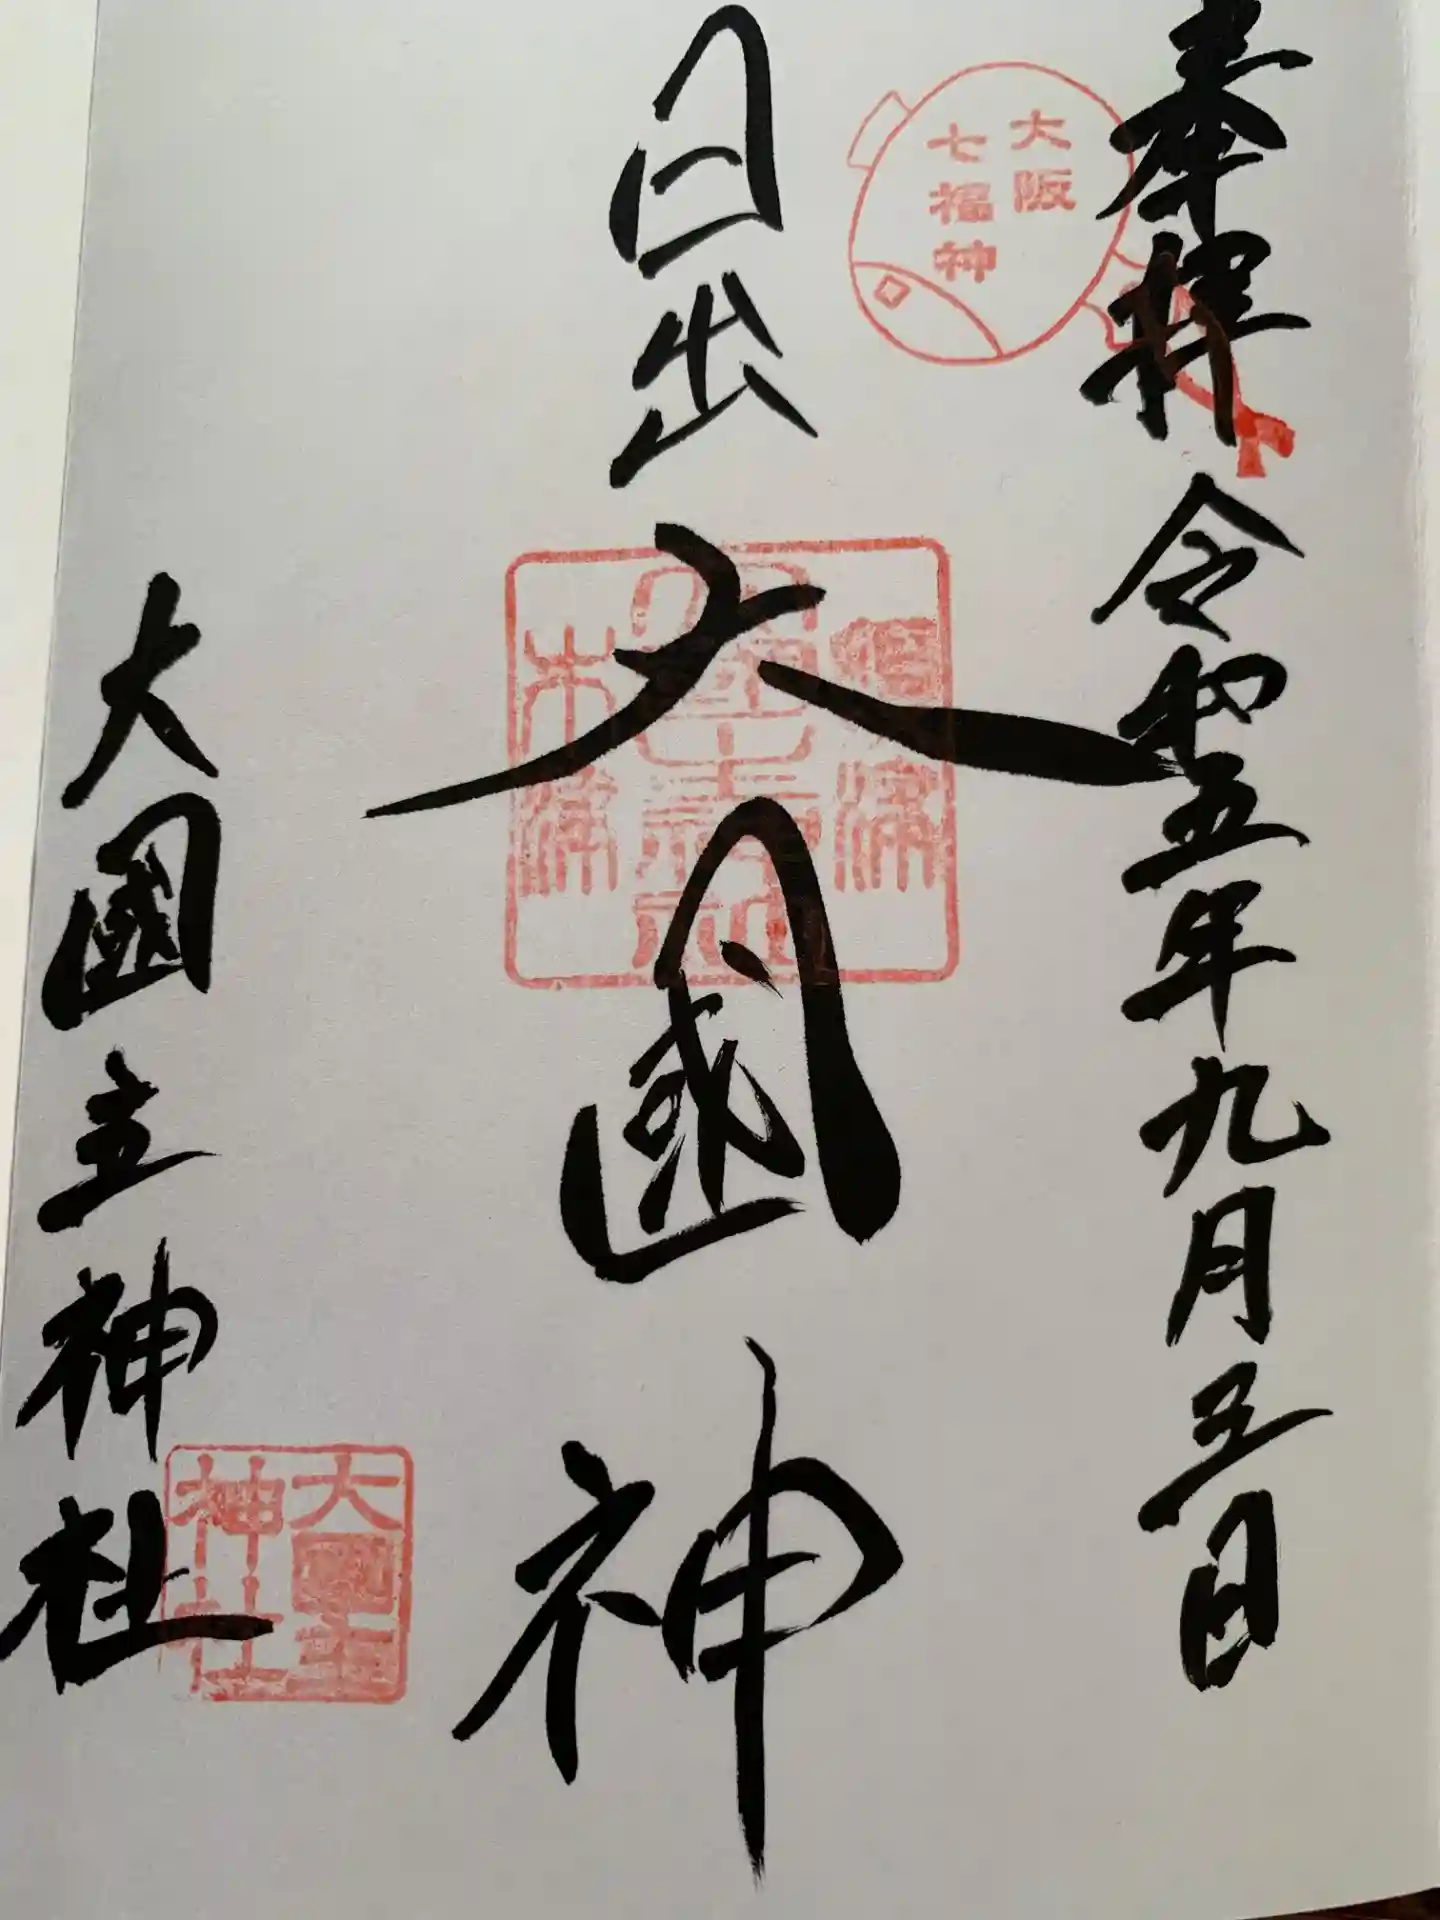 奉拝 令和五年九月三日
大阪
七福神
日出大國神
大國主神社
大國主
神社